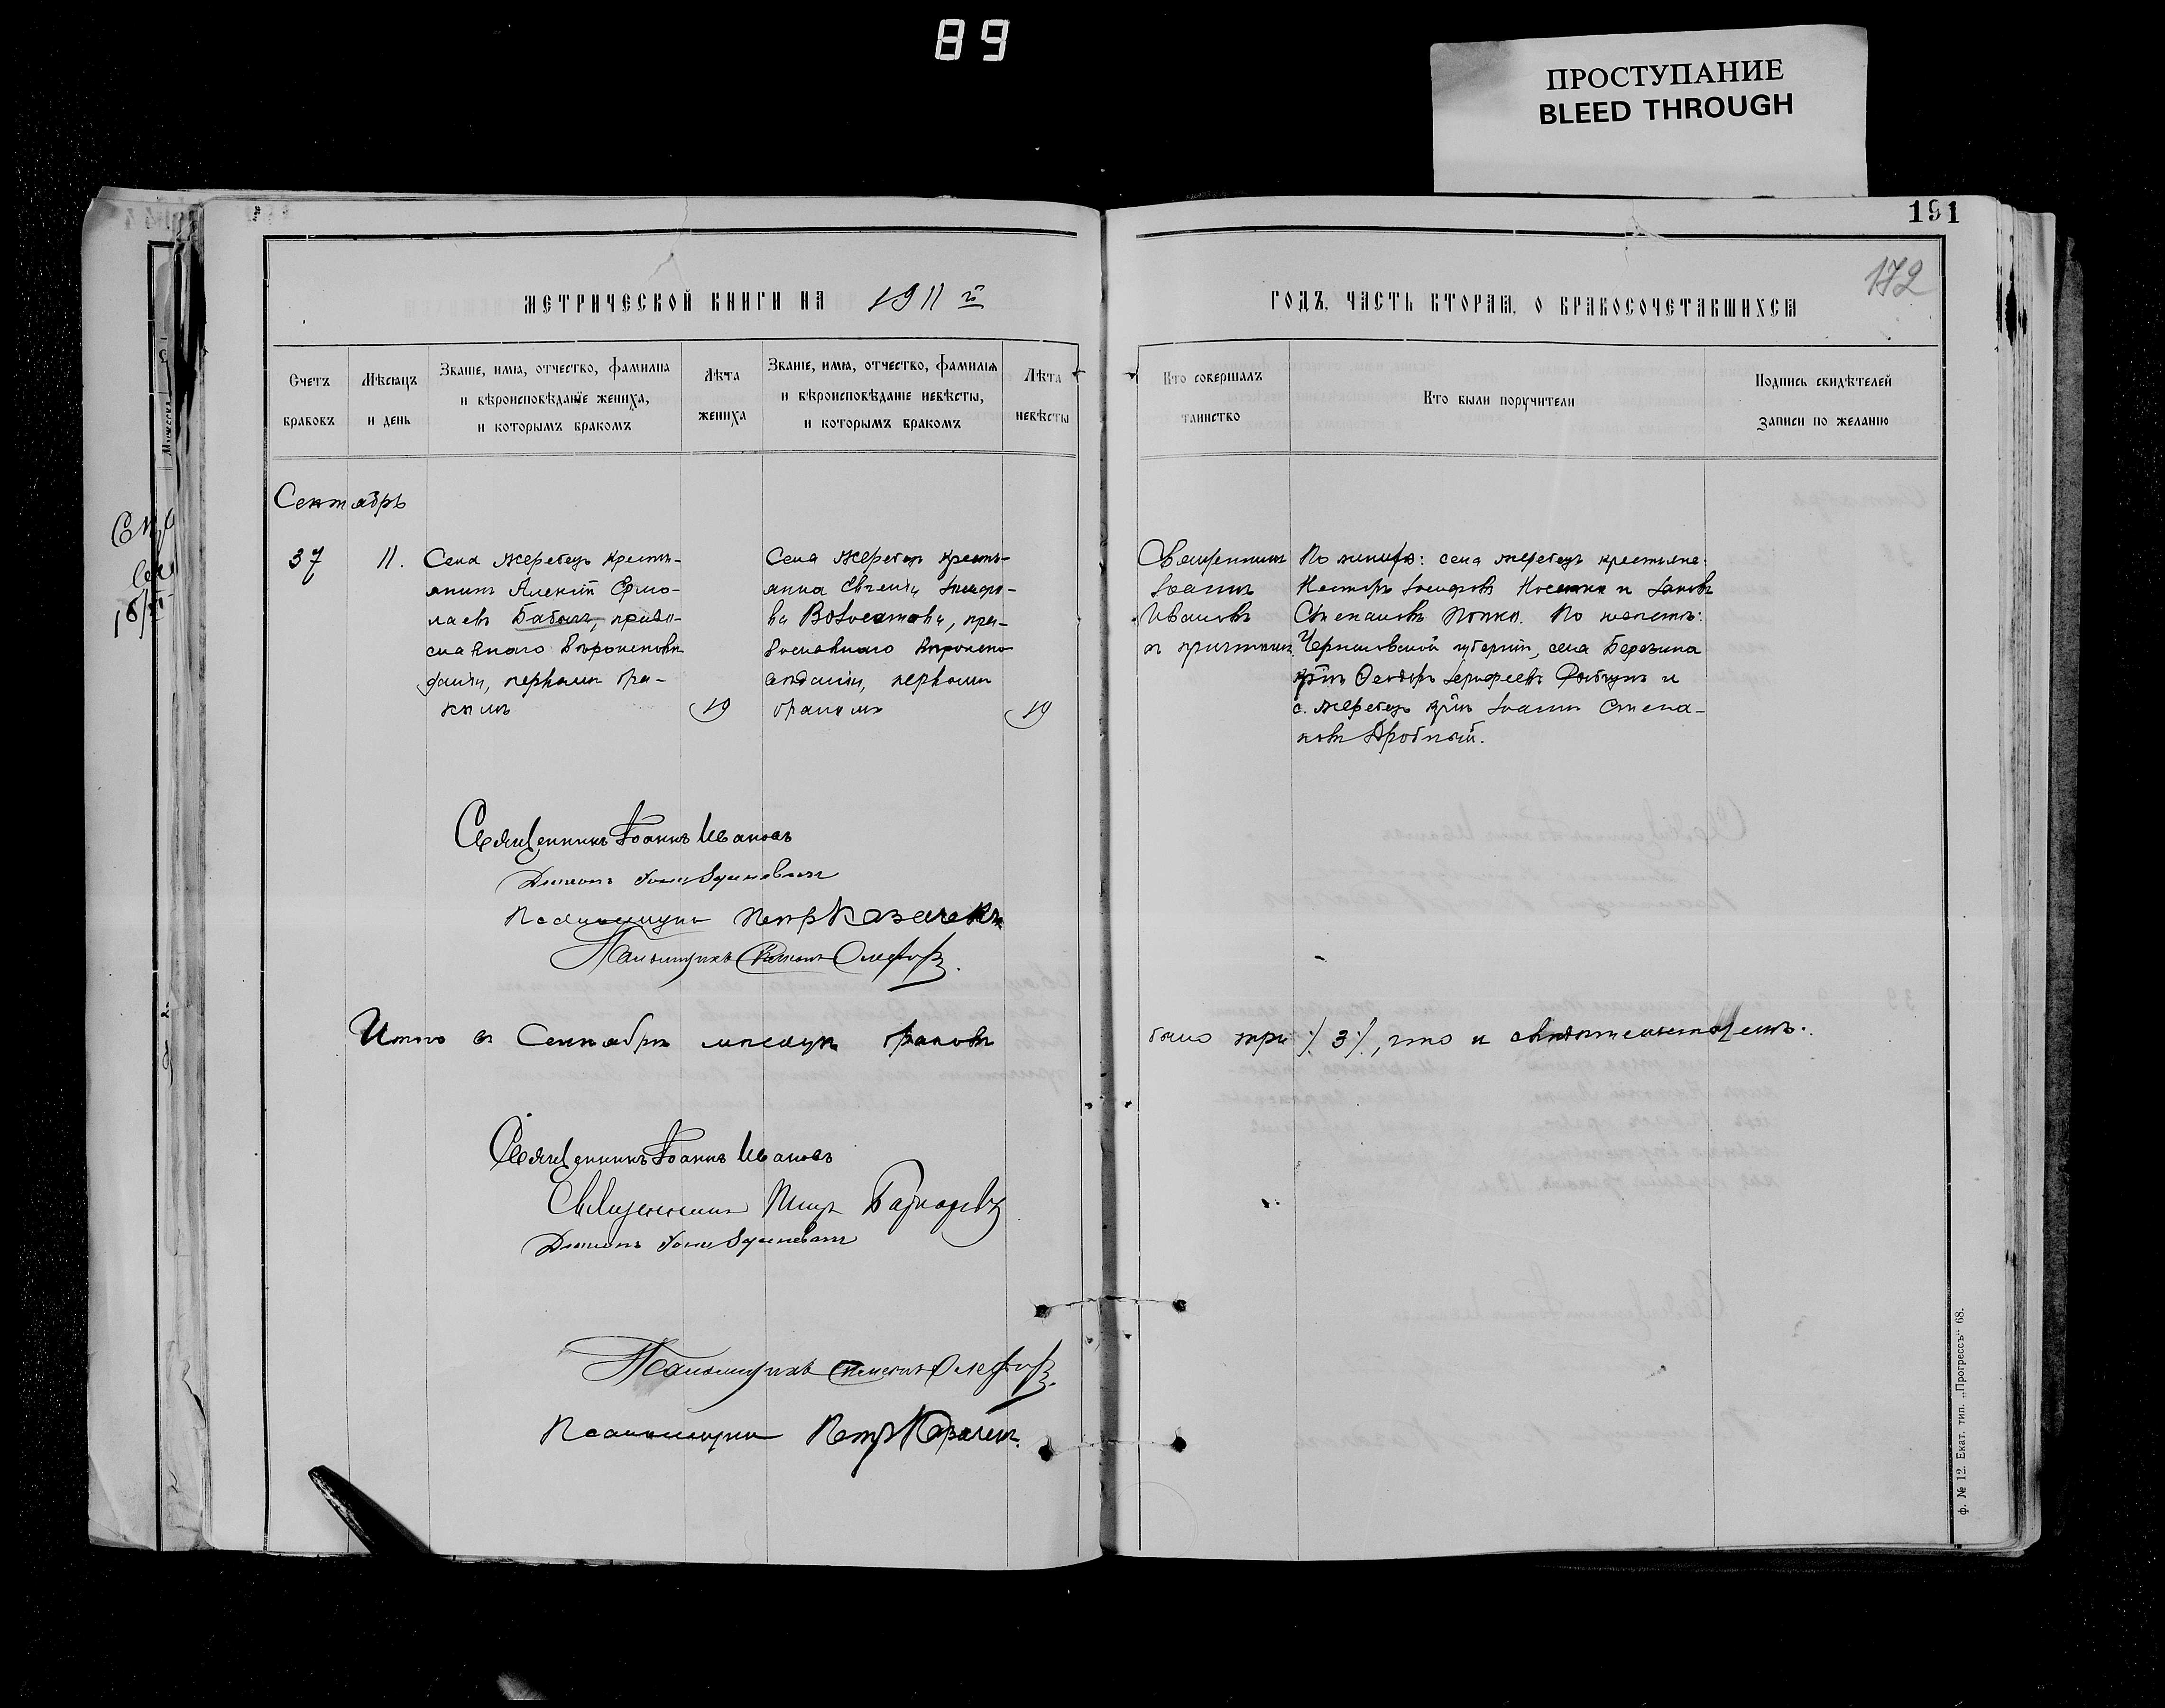 89
ПРОСТУПАНИЕ
BLEED THROUGH
191
172
МЕТРИЧЕСКОЙ КНИГИ НА 1911 й
ГОДЪ, ЧАСТЬ ВТОРАЯ, О БРАКОСОЧЕТАВШИХСЯ
Счетъ браковъ
Мѣсяцъ и день
Званіе, имя, отчество, фамилія
и вѣроисповѣданіе жениха,
и которымъ бракомъ
Лѣта жениха
Званіе, имя, отчество, фамилія
и вѣроисповѣданіе невѣсты,
и которымъ бракомъ
Лѣта невѣсты
Кто совершалъ таинство
Кто были поручители
Подпись свидѣтелей записи по желанію
Сентябрь
37
11.
Села Жеребецъ кресть-
янинъ Алексій Ермо-
лаевъ Бабичъ, право-
славнаго вѣроисповѣ
данія, первымъ бра-
комъ
19
Села Жеребецъ кресть-
янка Евгенія
, пра-
вославнаго вѣроиспо
вѣданія, первымъ
бракомъ
19
Священникъ
Іоаннъ
Ивановъ
съ причтомъ
По женихѣ: села Жеребецъ крестьяне:
Несторъ Іосифовъ Носенко и Іаковъ
Степановъ Попко. По невѣстѣ:
Черниговской губерніи, села Березина
кр-нъ Ѳеодоръ и
с. Жеребецъ кр-нъ Іоаннъ Степа-
новъ Дробный.
Священникъ Іоаннъ Ивановъ
Діаконъ
Псаломщикъ Петр Казачекъ
Псаломщикъ
Итого въ Сентябрѣ мѣсяцѣ браковъ
было три ⁒ 3 ⁒, что и свидѣтельствуемъ.
Священникъ Іоаннъ Ивановъ
Священникъ
Діаконъ
Псаломщикъ
Псаломщикъ Петр Казачекъ
ф. № 12. Екат. тип. „Прогрессъ“ 68.